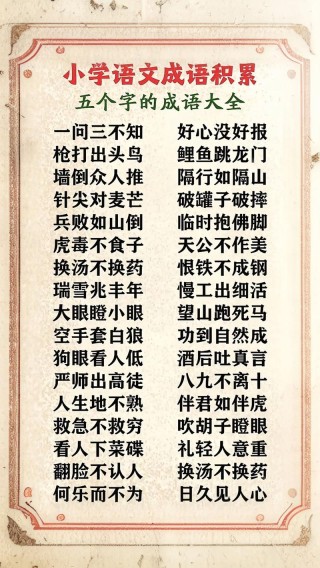 小学语文成语积累
五个字的成语大全
一问三不知 好心没好报
枪打出头鸟 鲤鱼跳龙门
墙倒众人推 隔行如隔山
针尖对麦芒 破罐子破摔
兵败如山倒 临时抱佛脚
虎毒不食子 天公不作美
换汤不换药 恨铁不成钢
瑞雪兆丰年 慢工出细活
大眼瞪小眼 望山跑死马
空手套白狼 功到自然成
狗眼看人低 酒后吐真言
严师出高徒 八九不离十
人生地不熟 伴君如伴虎
救急不救穷 吹胡子瞪眼
看人下菜碟 礼轻人意重
翻脸不认人 换汤不换药
何乐而不为 日久见人心